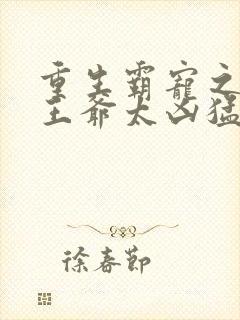 重生霸宠之
王爷太凶猛
徐春节